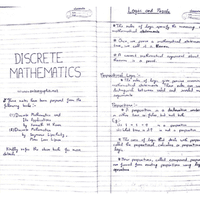 DISCRETE
MATHEMATICS
These notes have been prepared from the
following books :-
(1) Discrete Mathematics and
Its Applications
by Kenneth H. Rosen
(2) Discrete Mathematics
by Seymour Lipschutz,
Marc Lars Lipson
Kindly refer the above books for more
details.
Logic and Proofs
The rules of logic specify the meaning of
mathematical statements.
Once we prove a mathematical statement
true, we call it a theorem.
A correct mathematical argument about
theorem is a proof.
Propositional Logic :-
The rules of logic give precise meaning
mathematical statements. These rules are used
distinguish between valid and invalid
arguments.
Proposition :-
A proposition is a declarative
either true or false, but not both.
Eg.
1 + 1 = 2 is a proposition.
What time is it? is not a proposition.
The area of logic that deals with
called the propositional calculus or propositional
logic.
New propositions, called compound propositions,
are formed from existing propositions using